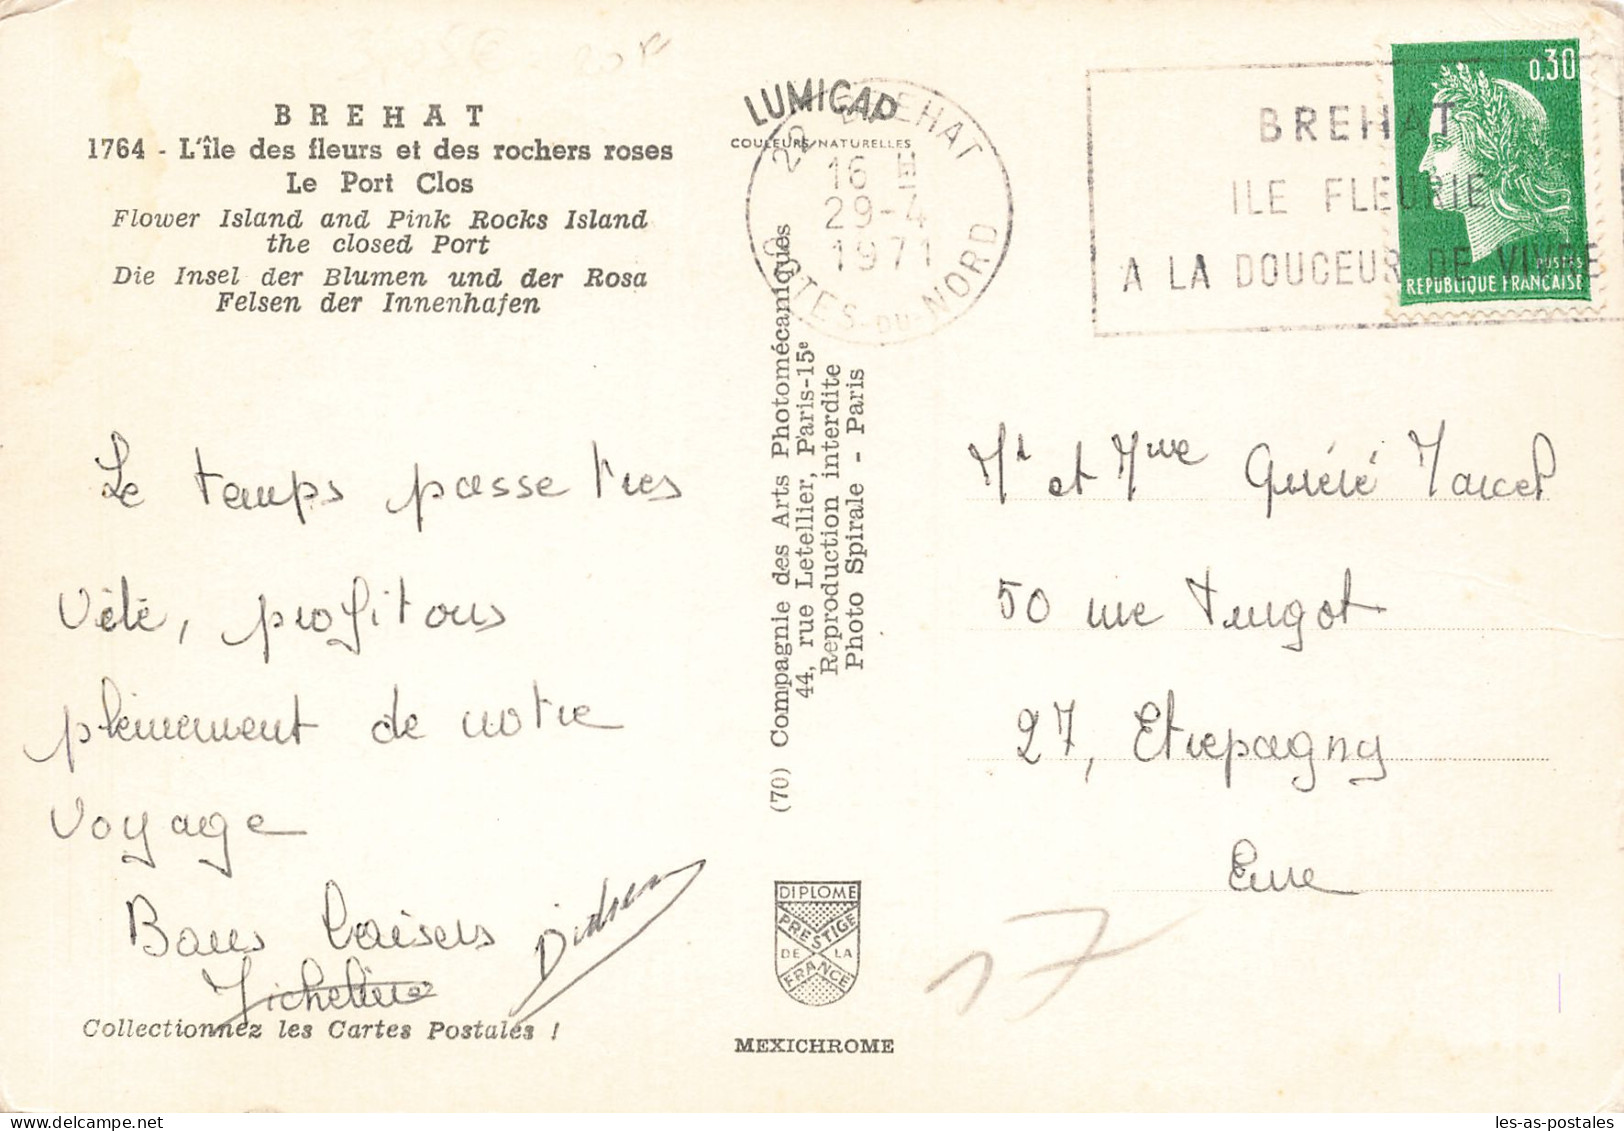 BREHAT
1764 - L'île des fleurs et des rochers roses
Le Port Clos
Flower Island and Pink Rocks Island
the closed Port
Die Insel der Blumen und der Rosa
Felsen der Innenhafen
LUMICAP
COULEURS NATURELLES
22 BREHAT
16 H
29-4
1971
COTES-DU-NORD
BREHAT
ILE FLEURIE
A LA DOUCEUR DE VIVRE
0,30
POSTES
REPUBLIQUE FRANCAISE
Le temps passe très
vite, profitons
pleinement de notre
voyage
Bons baisers
Micheline
Collectionnez les Cartes Postales !
(70) Compagnie des Arts Photomécaniques
44, rue Letellier, Paris-15e
Reproduction interdite
Photo Spirale - Paris
DIPLOME
PRESTIGE
DE LA
FRANCE
MEXICHROME
Mr et Mme Quéré Marcel
50 rue Turgot
27, Etrepagny
Eure
17
les-as-postales